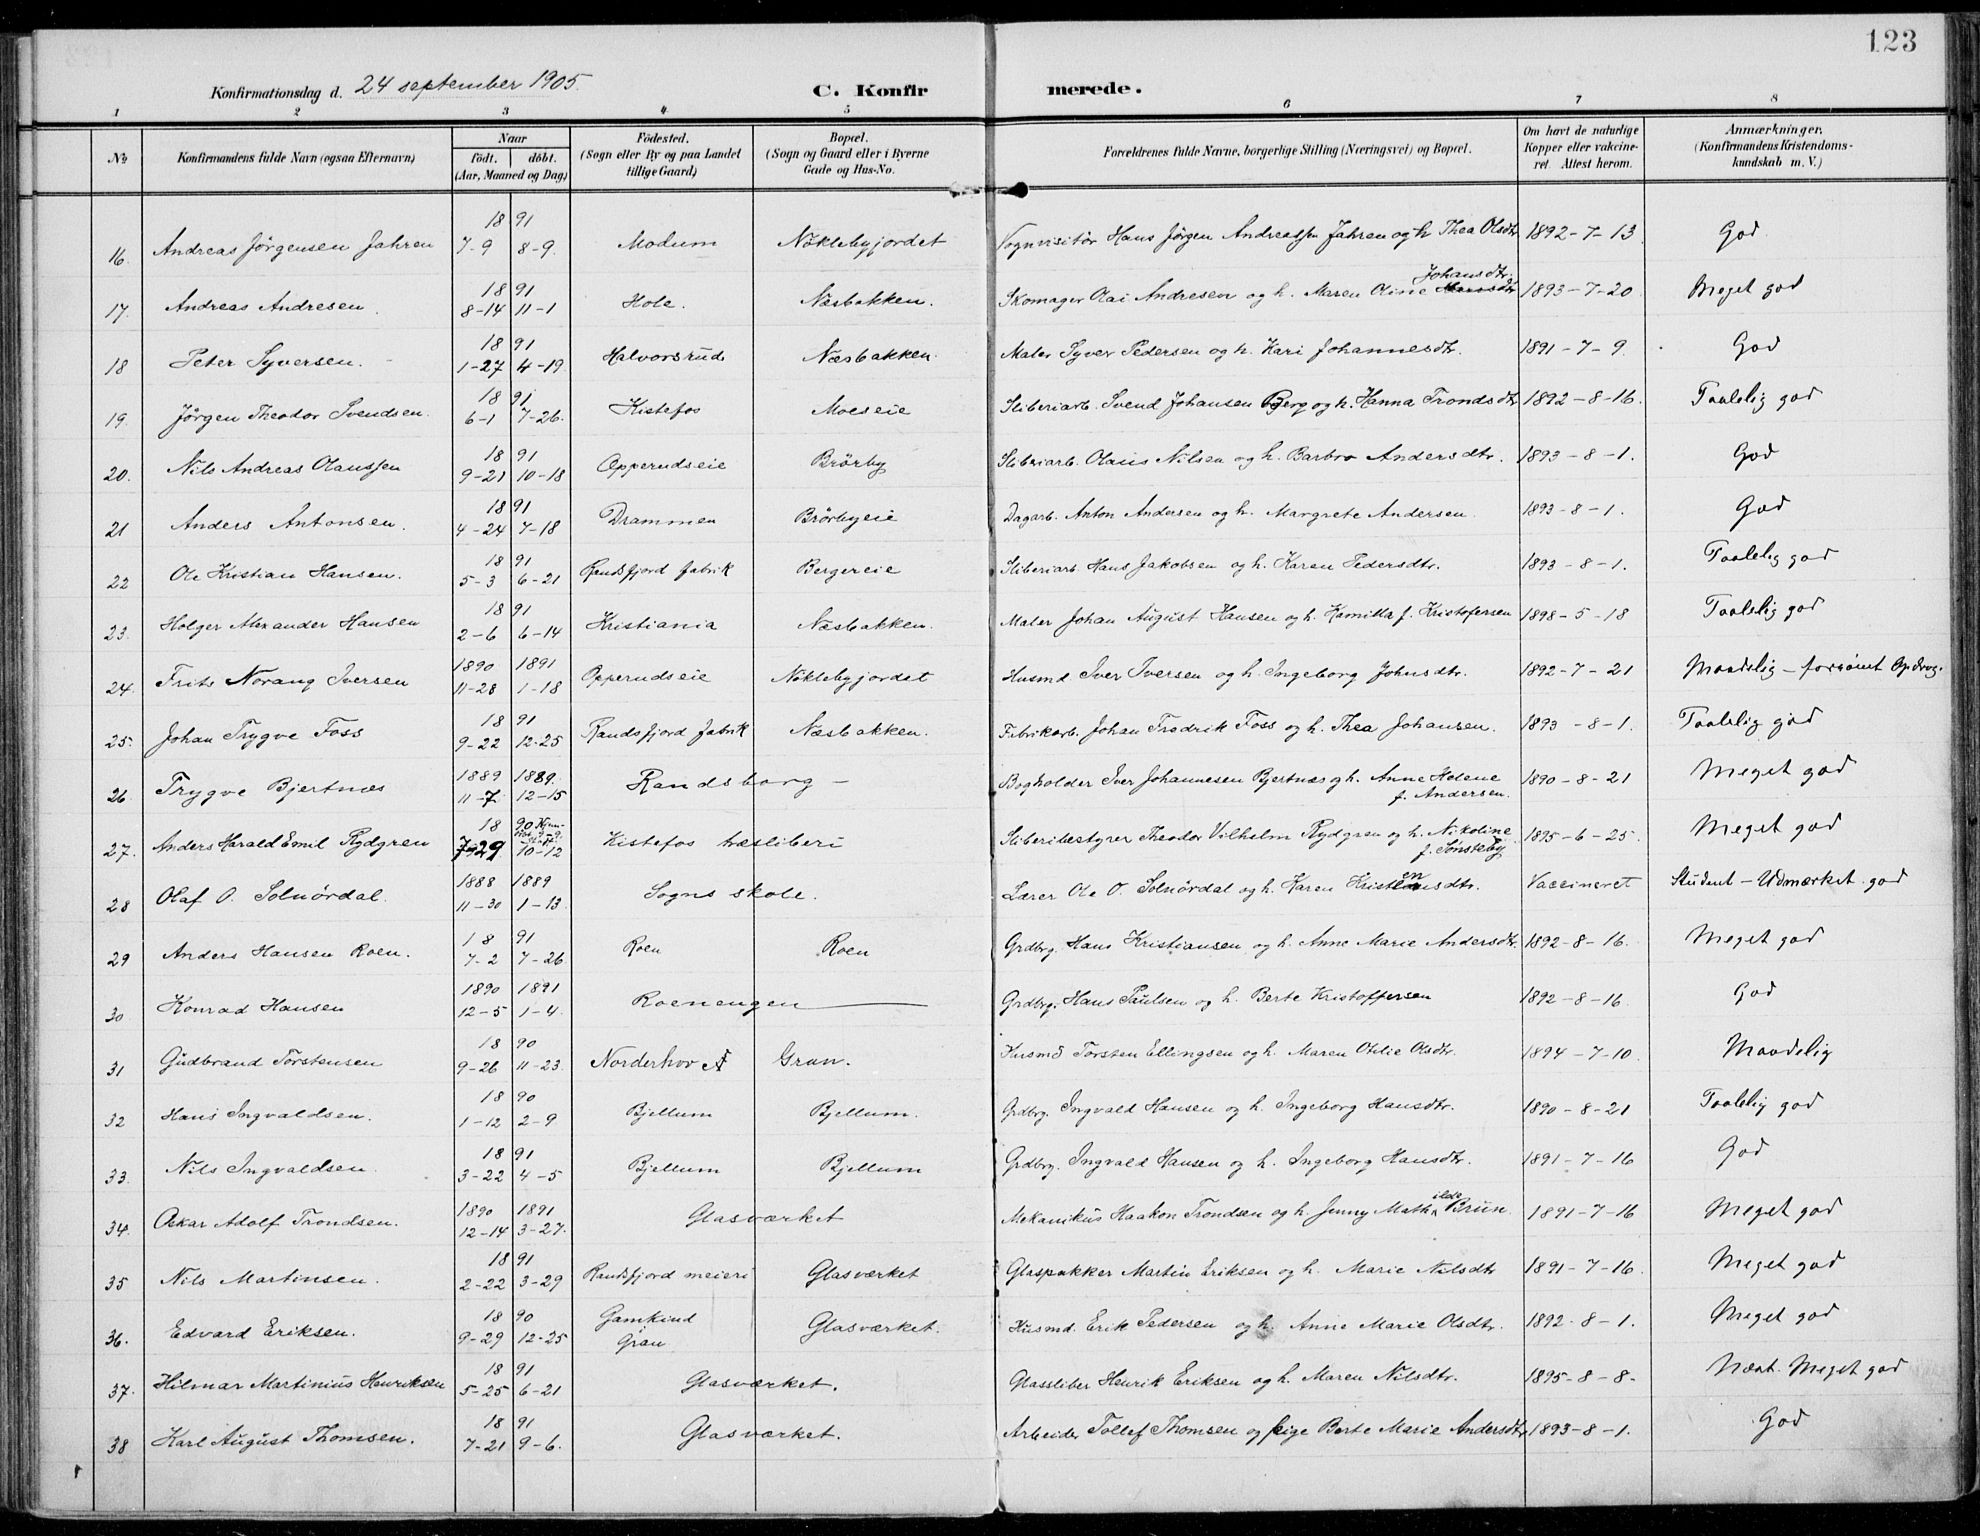 123
Konfirmationsdag d. 24 september 1905. C. Konfir merede.
1 2 3 4 5 6 7 8
No Konfirmandens fulde Navn (ogsaa Efternavn) Naar födt. döbt. (Aar, Maaned og Dag) Födested. (Sogn eller By og paa Landet tillige Gaard) Bopæl. (Sogn og Gaard eller i Byerne Gade og Hus-No. Forældrenes fulde Navne, borgerlige Stilling (Næringsvei) og Bopæl. Om havt de naturlige Kopper eller vakcineret. Attest herom. Anmærkninger. (Konfirmandens Kristendomskundskab m. V.)
16. Andreas Jörgensen Jahren 1891 7-9 8-9. Modum Nöklebyjordet Vognvisitör Hans Jörgen Andreassen Jahren og h. Thea Olsdtr. 1892-7-13. God
17. Andreas Andresen 1891 8-14 11-1 Hole. Næsbakken. Skomager Olai Andresen og h. Maren Oline Johansdtr. 1893-7-20 Meget god
18 Peter Syversen. 1891 1-27 4-19 Halvorsrud Næsbakken. Maler Syver Pedersen og h. Kari Johannesdtr. 1891-7-9. God
19. Jörgen Theodor Svendsen. 1891 6-1 7-26. Kistefos Moeseie Sliberiarb. Svend Johansen Berg og h. Hanna Trondsdtr. 1892-8-16. Taalelig god
20. Nils Andreas Olaussen 1891 9-21 10-18 Opperudseie Brörby Sliberiarb. Olaus Nilsen og h. Barbro Andersdtr. 1893-8-1. God
21 Anders Antonsen. 1891 4-24 7-18 Drammen Brörbyeie Dagarb. Anton Andersen og h. Margrete Andersen. 1893-8-1. God
22 Ole Kristian Hansen. 1891 5-3 6-21 Randsfjord fabrik Bergereie Sliberiarb. Hans Jakobsen og h. Karen Pedersdtr. 1893-8-1. Taalelig god
23. Holger Alexander Hansen 1891 2-6 6-14 Kristiania Næsbakken. Maler Johan August Hansen og h. Kamilla f. Kristofersen 1898-5-18 Taalelig god
24. Frits Norang Iversen 1890 1891 11-28 1-18 Opperudseie Nöklebyjordet Husmd Iver Iversen og h. Ingeborg Johnsdtr. 1892-7-21 Maadelig - forsömt Opdrag.
25. Johan Trygve Foss 1891 9-22 12-25 Randsfjord fabrik Næsbakken. Fabrikarb. Johan Fredrik Foss og h. Thea Johansen. 1893-8-1. Taalelig god
26. Trygve Bjertnæs 1889 1889. 11-7 12-15 Randsborg - Bogholder Iver Johannesen Bjertnæs og h. Anne Helene f. Andersen. 1890-8-21 Meget god
27. Anders Harald Emil Rydgren 1890 7-29 10-12 Kistefos træsliberi Sliberibestyrer Theodor Vilhelm Rydgren og h. Nikoline f. Sönsteby 1895-6-25. Meget god
28 Olaf O. Solnördal. 1888 1889 11-30 1-13. Sogns skole. Lærer Ole O. Solnördal og h. Karen Kristensdtr. Vaccineret Student - Udmærket god
29 Anders Hansen Roen. 1891 7-2 7-26 Roen Roen Grdbrg. Hans Kristiansen og h. Anne Marie Andersdtr. 1892-8-16. Meget god
30 Konrad Hansen 1890 1891 12-5 1-4. Roenengen Grdbrg. Hans Paulsen og h. Berte Kristoffersen 1892-8-16. God
31 Gudbrand Torstensen 1890 9-26 11-23. Norderhov Gran. Husmd Torsten Ellingsen og h. Maren Otilie Olsdtr. 1894-7-10. Maadelig
32 Hans Ingvaldsen. 1890 1-12 2-9 Bjellum Bjellum. Grdbrg. Ingvald Hansen og h. Ingeborg Hansdtr. 1890-8-21 Taalelig god
33. Nils Ingvaldsen. 1891 3-22 4-5 Bjellum Bjellum Grdbrg. Ingvald Hansen og h. Ingeborg Hansdtr. 1891-7-16 God
34. Oskar Adolf Trondsen. 1890 1891 12-14 3-27. Glasværket Mekanikus Haakon Trondsen og h. Jenny Mathilde Bruun. 1891-7-16 Meget god
35 Nils Martinsen. 1891 2-22 3-29 Randsfjord meieri Glasværket Glaspakker Martin Eriksen og h. Marie Nilsdtr 1891-7-16. Meget god
36. Edvard Eriksen. 1890 9-29 12-25 Gamkind Gran Glasværket. Husmd. Erik Pedersen og h. Anne Marie Olsdtr. 1892-8-1. Meget god
37. Hilmar Martinius Henriksen 1891 5-25 6-21 Glasværket. Glassliber Henrik Eriksen og h. Maren Nilsdtr. 1895-8-8. Næst. Meget god
38 Karl August Thomsen. 1891 7-21 9-6. Glasværket. Arbeider Tollef Thomsen og pige Berte Marie Andersdtr 1893-8-1. God